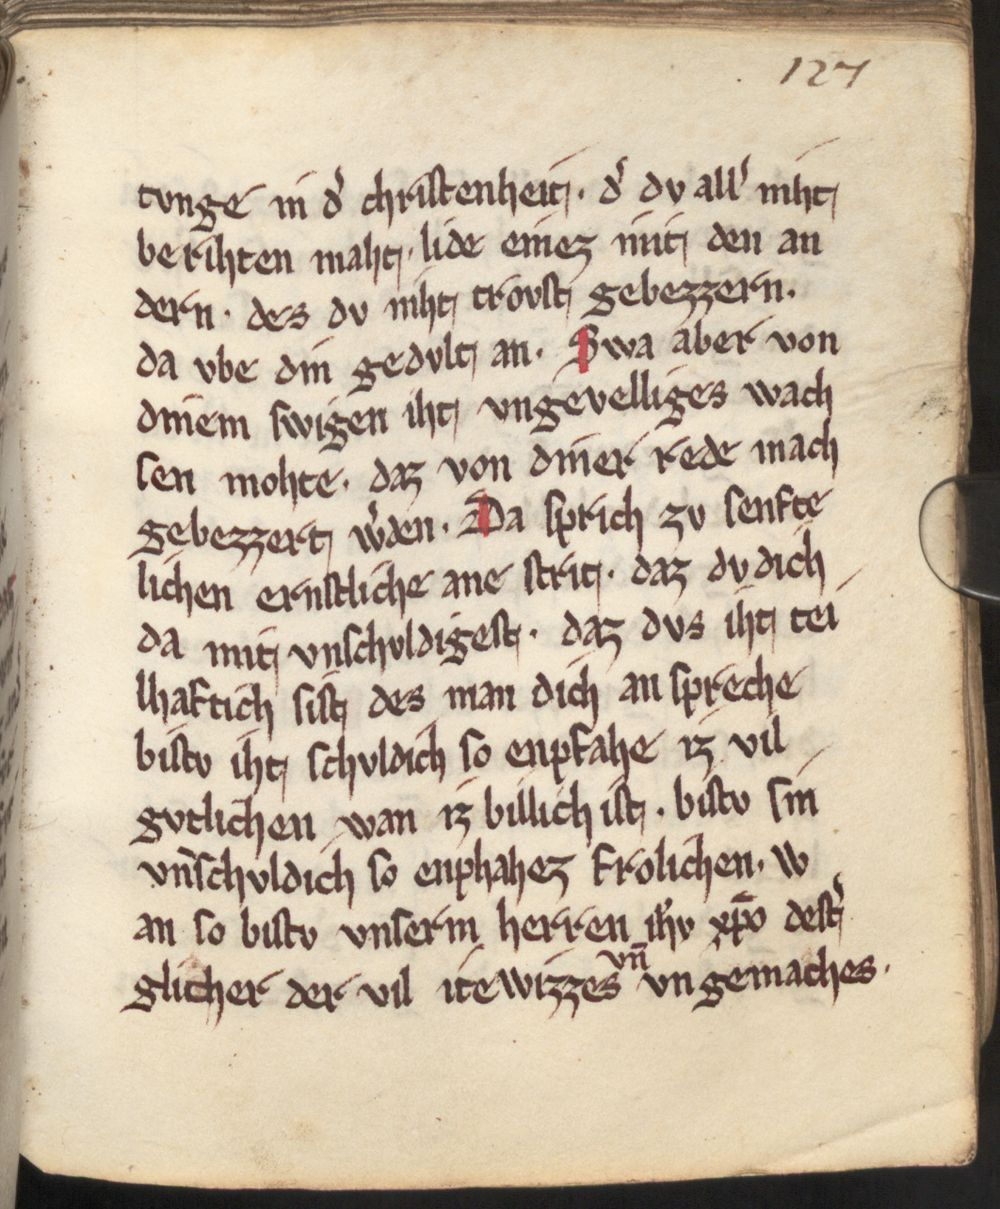 127
tvnge in d̾ christenheit . d̾ dv all̾ niht
berihten maht . lide einez mit den an
dern . des dv niht trovst gebezzern .
da vbe din gedvlt an . Swa aber von
dinem swigen iht vngevelliges wach
sen mohte . daz von diner rede mach
gebezzert w̾den . Da sprich zv senfte
lichen ernstliche ane strit . daz dv dich
da mit vnschvldigest . daz dvs iht tei
lhaftich sist des man dich an spreche
bistv iht schvldich so enpfahe iz vil
gvtlichen wan iz billich ist . bistv sin
vnschvldich so enphahez frolichen . w
an so bistv vnserm herren ih̅v xp̅o dest̾
glicher der vil itewizzes vn̅ vngemaches .